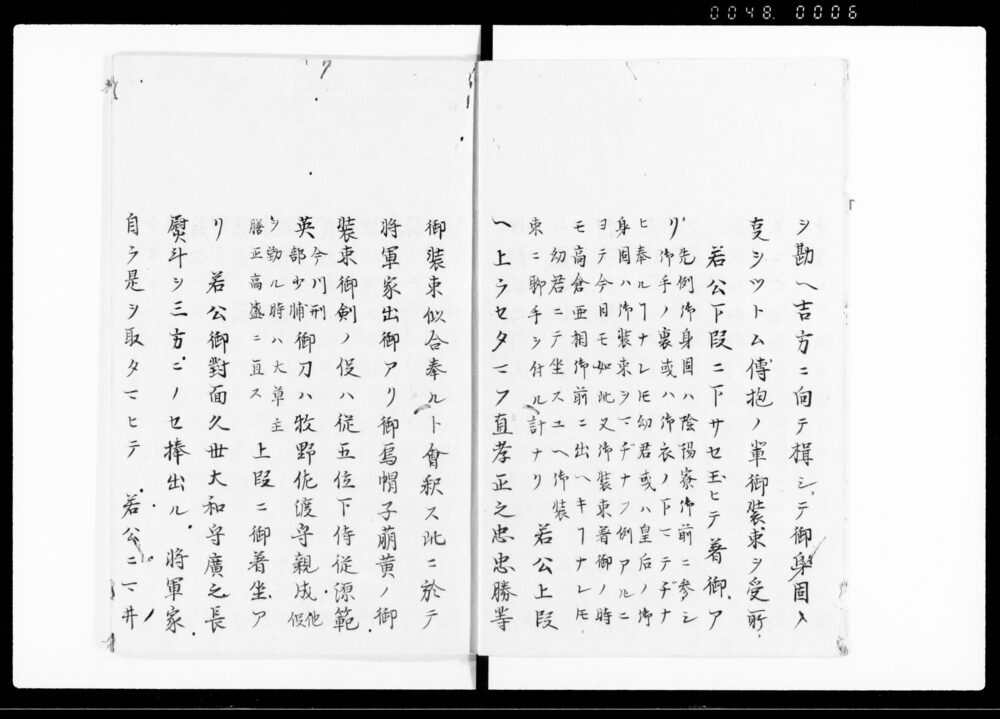 0048. 0006
シ勘ヘ吉方ニ向テ揖シテ御身固ハ
受シツトム傅抱ノ輩御裝束ヲ受所
若公下段ニ下サセ玉ヒテ着御ア
リ
先例御身固ハ陰陽寮御前ニ参シ
御手ノ裏或ハ御衣ノ下マテヂナ
ヒ奉ルヿナレ𪜈幼君或ハ皇后ノ御
身固ハ御裝束ヲマヂナフ例アルニ
ヨテ今日モ如此又御裝束着御ノ時
モ高倉亜相御前ニ出ヘキヿナレ𪜈
幼君ニテ坐スユヘ御裝
束ニ聊手ヲ付ル計ナリ
若公上段
ヘ上ラセタマフ直孝正之忠忠勝等
御裝束似合奉ルト會釈ス此ニ於テ
將軍家出御アリ御烏帽子萠黄ノ御
裝束御剣ノ役ハ従五位下侍従源範
英
今川刑
部少輔
御刀ハ牧野佐渡守親成
他
役
ヲ勤ル時ハ大草主
膳正高盛ニ直ス
上段ニ御着坐ア
リ 若公御對面久世大和守廣之長
熨斗ヲ三方ニノセ捧出ル 將軍家
自ラ是ヲ取タマヒテ 若公ニマ井